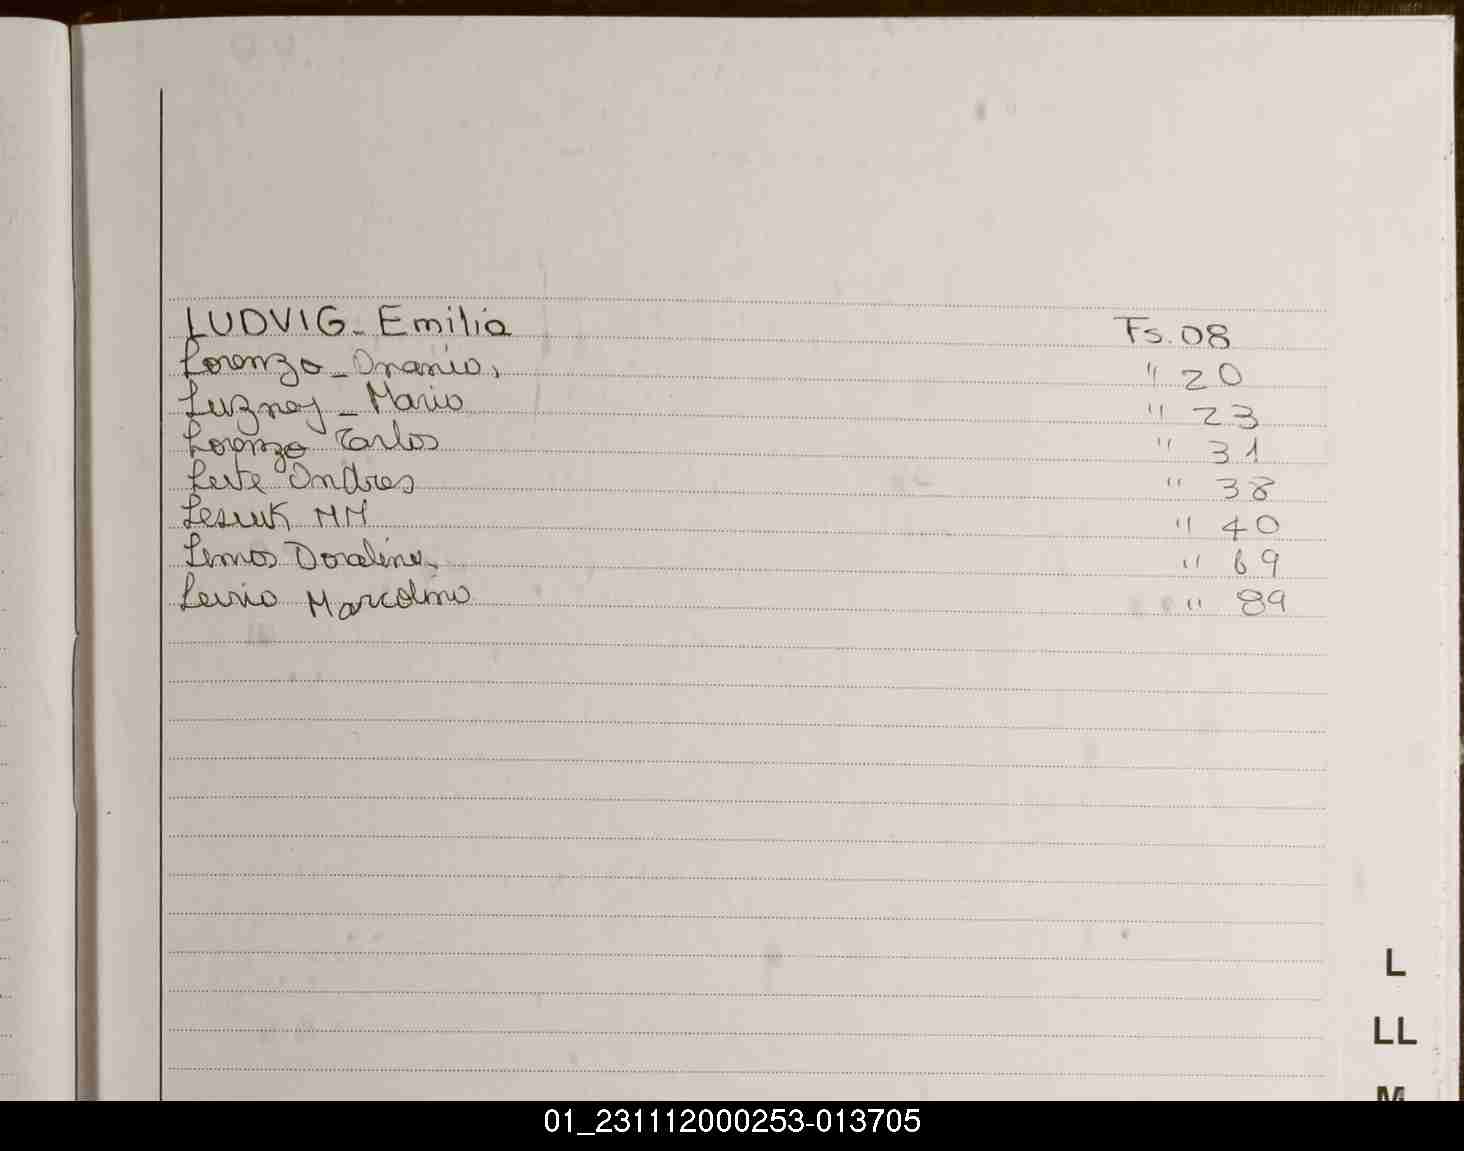 LUDVIG - Emilia Fs. 08
Lorenzo - Onanio, " 20
Luznej - Mario " 23
Lorenzo Carlos " 31
Leite Andres " 38
Lesiuk MM " 40
Lemos Doraline " 69
Leirio Marcolino " 89
L
LL
M
01_231112000253-013705